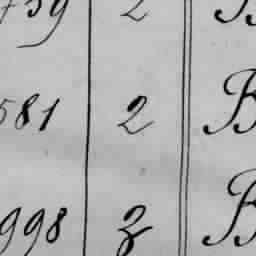 759 2 B
581 2 B
998 3 B